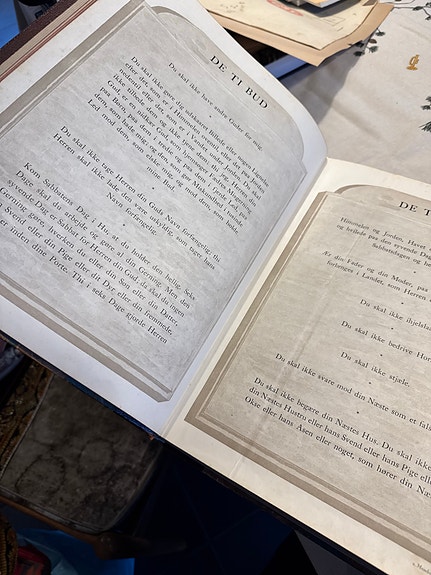 DE TI BUD
Du skal ikke have andre Guder for mig.
Du skal ikke gøre dig udskaaret Billede eller nogen Lignelse
efter det, som er i Himmelen oventil eller det paa Jorden
nedentil eller det, som er i Vandet under Jorden. Du skal
ikke tilbede dem og ikke tjene dem; thi jeg, Herren din
Gud, er en nidkær Gud, som hjemsøger Fædres Misgerning
paa Børn, paa dem i tredie og paa dem i fjerde Led, paa
dem, som hader mig, og den, som gør Miskundhed i tusinde
Led mod dem, som elsker mig, og mod dem, som holde
mine Bud.
Du skal ikke tage Herren din Guds Navn forfængelig, thi
Herren skal ikke lade den være uskyldig, som tager hans
Navn forfængelig.
Kom Sabbatens Dag i Hu, at du holder den hellig. Seks
Dage skal du arbejde og gøre al din Gerning. Men den
syvende Dag er Sabbat for Herren din Gud, da skal du ingen
Gerning gøre, hverken du eller din Søn eller din Datter,
Svend eller din Pige eller dit Dyr eller din fremmede,
er inden dine Porte. Thi i seks Dage gjorde Herren
DE T
Himmelen og Jorden, Havet
og hvilede paa den syvende Dag
Sabbatsdagen og he
Ær din Fader og din Moder, paa
forlænges i Landet, som Herren
Du skal ikke ihjelsla
Du skal ikke bedrive Hor
Du skal ikke stjæle.
Du skal ikke svare mod din Næste som et fals
Du skal ikke begære din Næstes Hus. Du skal ikke
din Næstes Hustru eller hans Svend eller hans Pige ell
Okse eller hans Asen eller noget, som hører din Næ